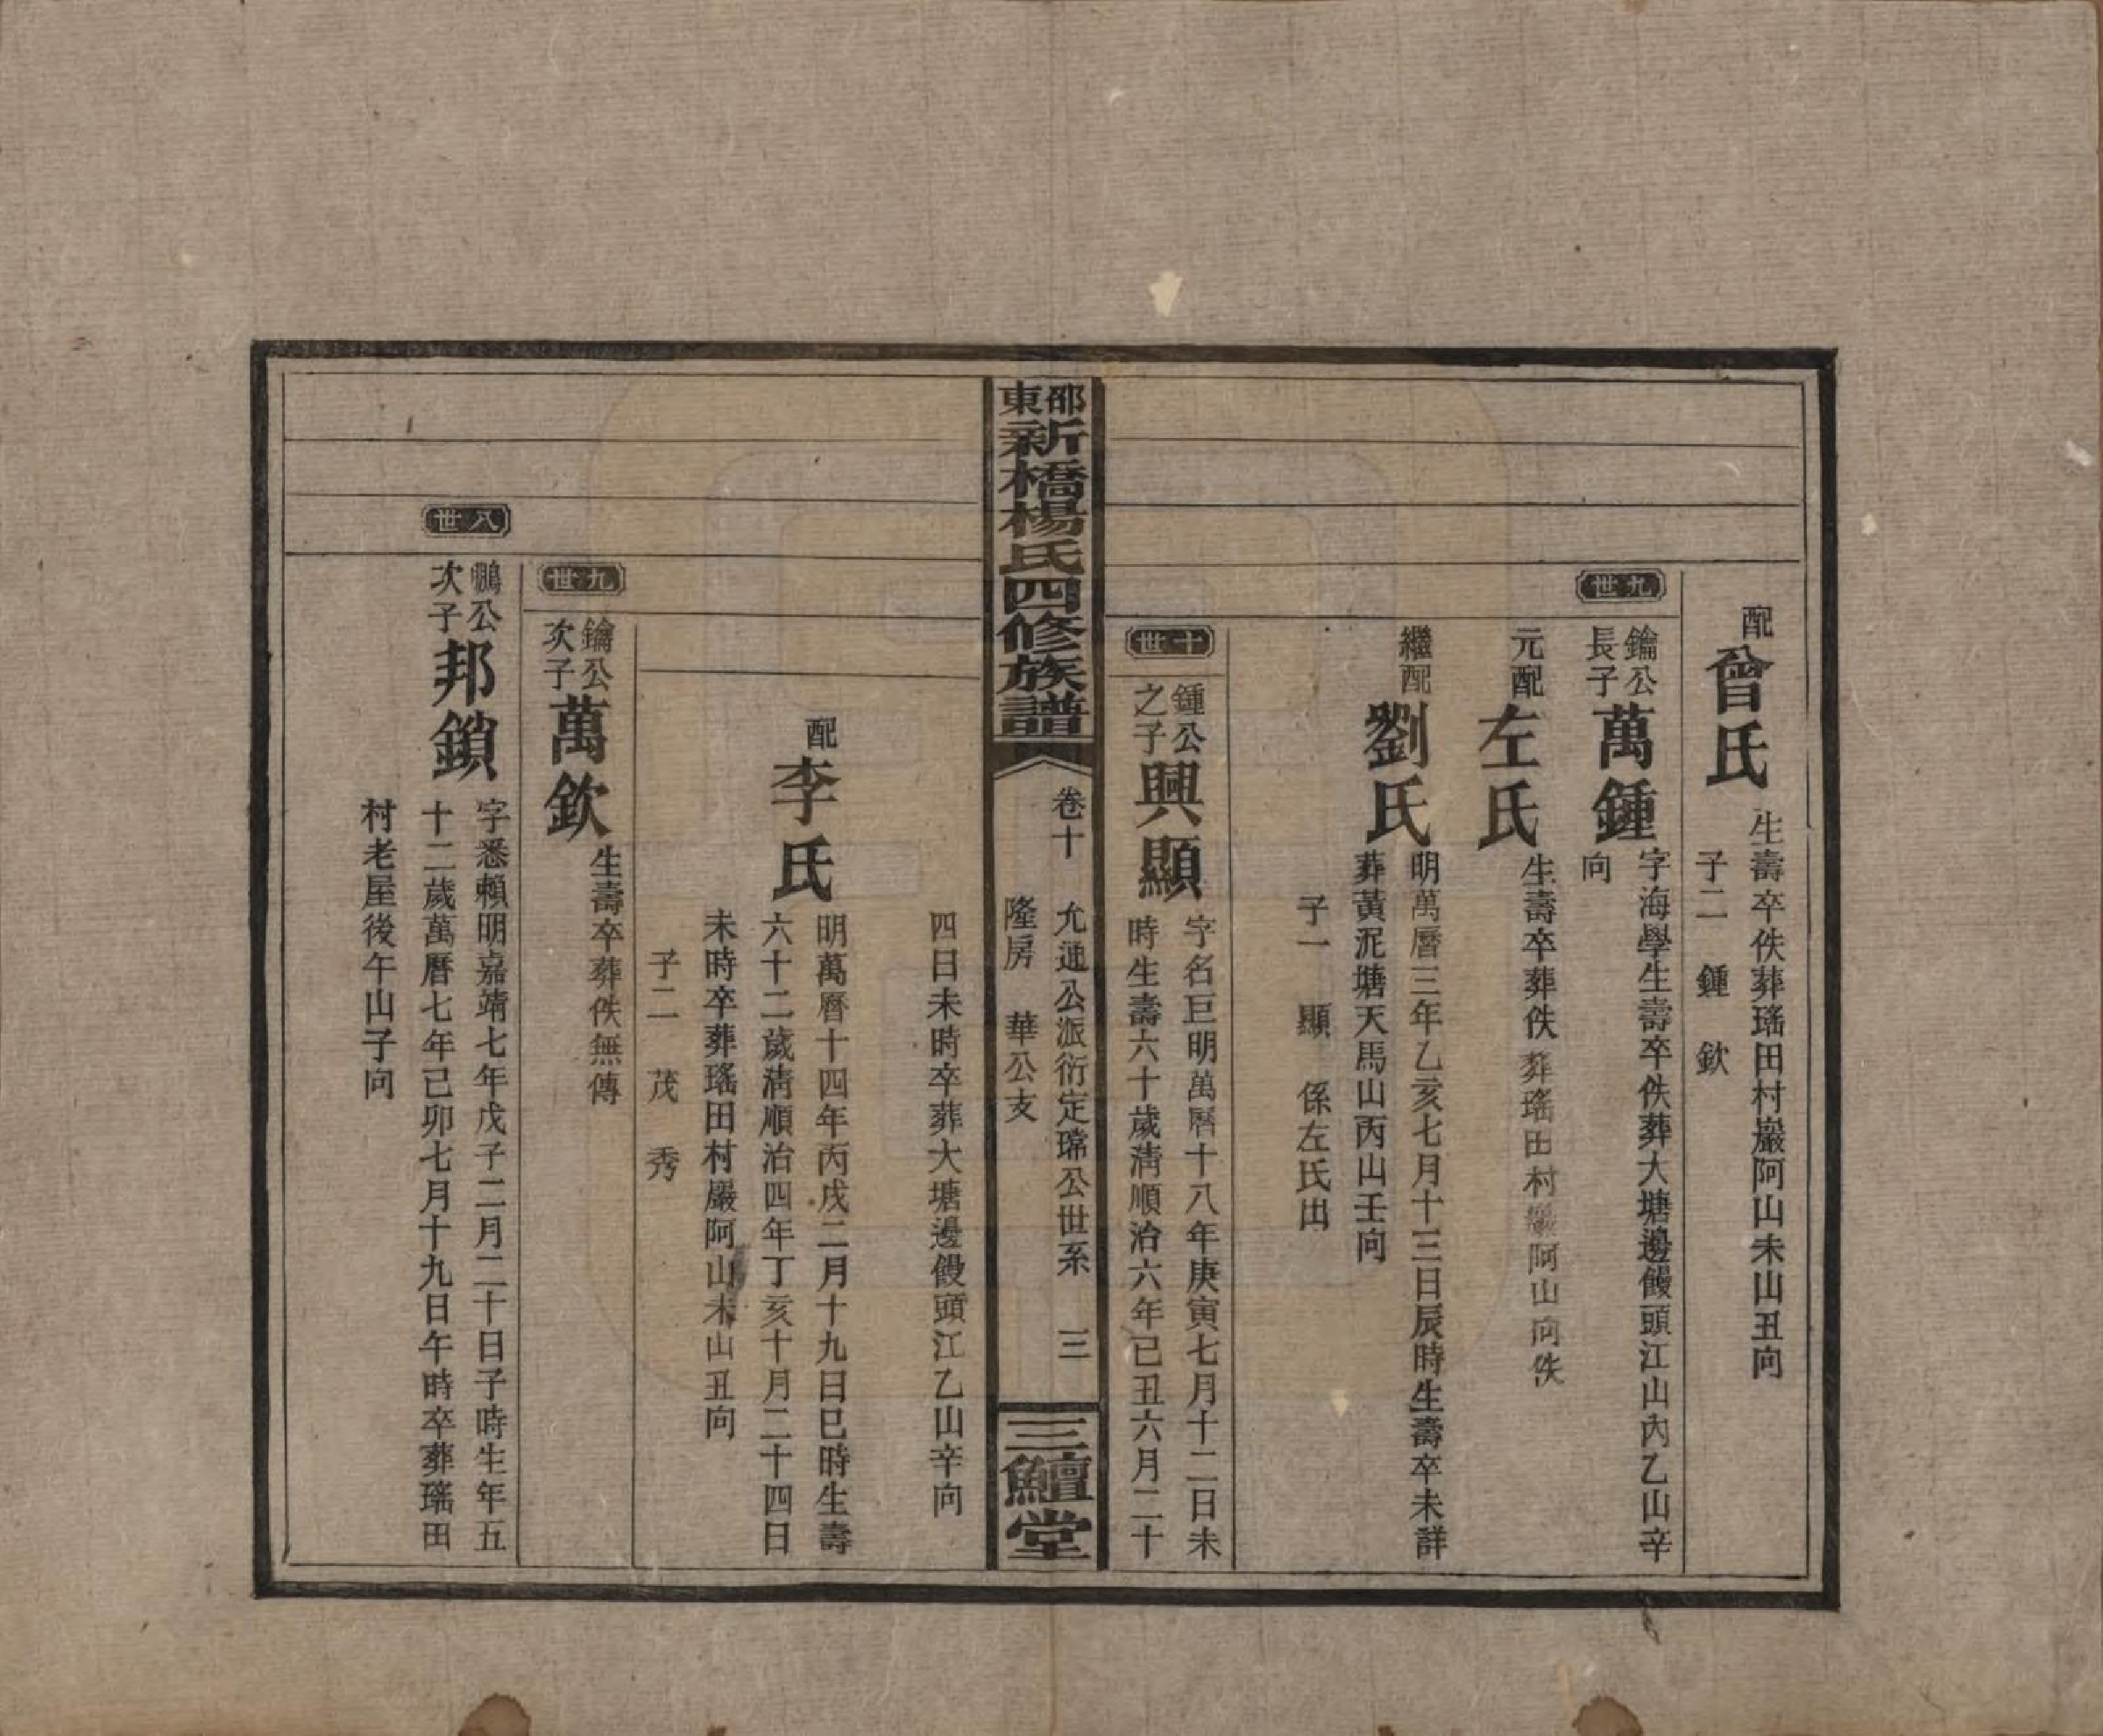 配曾氏
生壽卒佚葬瑤田村巖阿山未山丑向
子二　鍾　欽
九世
鑰公長子萬鍾
字海學生壽卒佚葬大塘邊饅頭江山內乙山辛
向
元配左氏
生壽卒葬佚葬瑤田村巖阿山向佚
繼配劉氏
明萬曆三年乙亥七月十三日辰時生壽卒未詳
葬黃泥塘天馬山丙山壬向
子一　顯　係左氏出
十世
鍾公之子興顯
字名巨明萬曆十八年庚寅七月十二日未
時生壽六十歲淸順治六年已丑六月二十
邵東新橋楊氏四修族譜
卷十　允通公派衍定瑺公世系　三
隆房　華公支
三鱣堂
四日未時卒葬大塘邊饅頭江乙山辛向
配李氏
明萬曆十四年丙戌二月十九日巳時生壽
六十二歲淸順治四年丁亥十月二十四日
未時卒葬瑤田村巖阿山未山丑向
子二　茂　秀
九世
鑰公次子萬欽
生壽卒葬佚無傳
八世
鵬公次子邦鎖
字悉賴明嘉靖七年戊子二月二十日子時生年五
十二歲萬曆七年己卯七月十九日午時卒葬瑤田
村老屋後午山子向